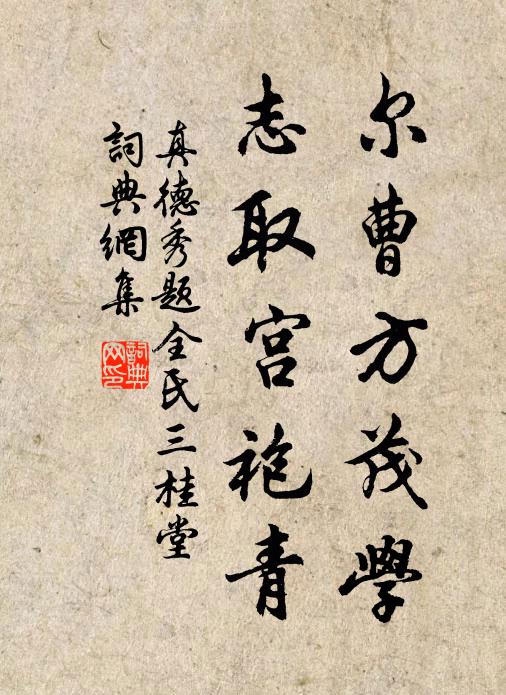 尔曹方茂學
志取宫袍青
真德秀题全氏三桂堂
詞典網集
詞典网印